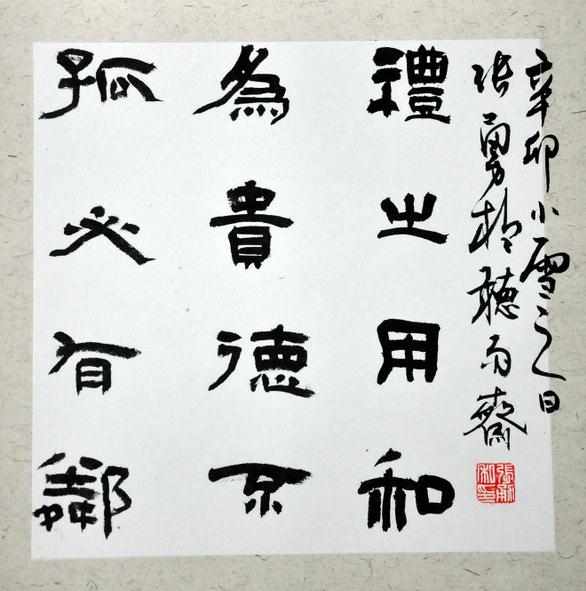 禮之用和
為貴德不
孤必有鄰
辛卯小雪之日
張勇於聽雨齋